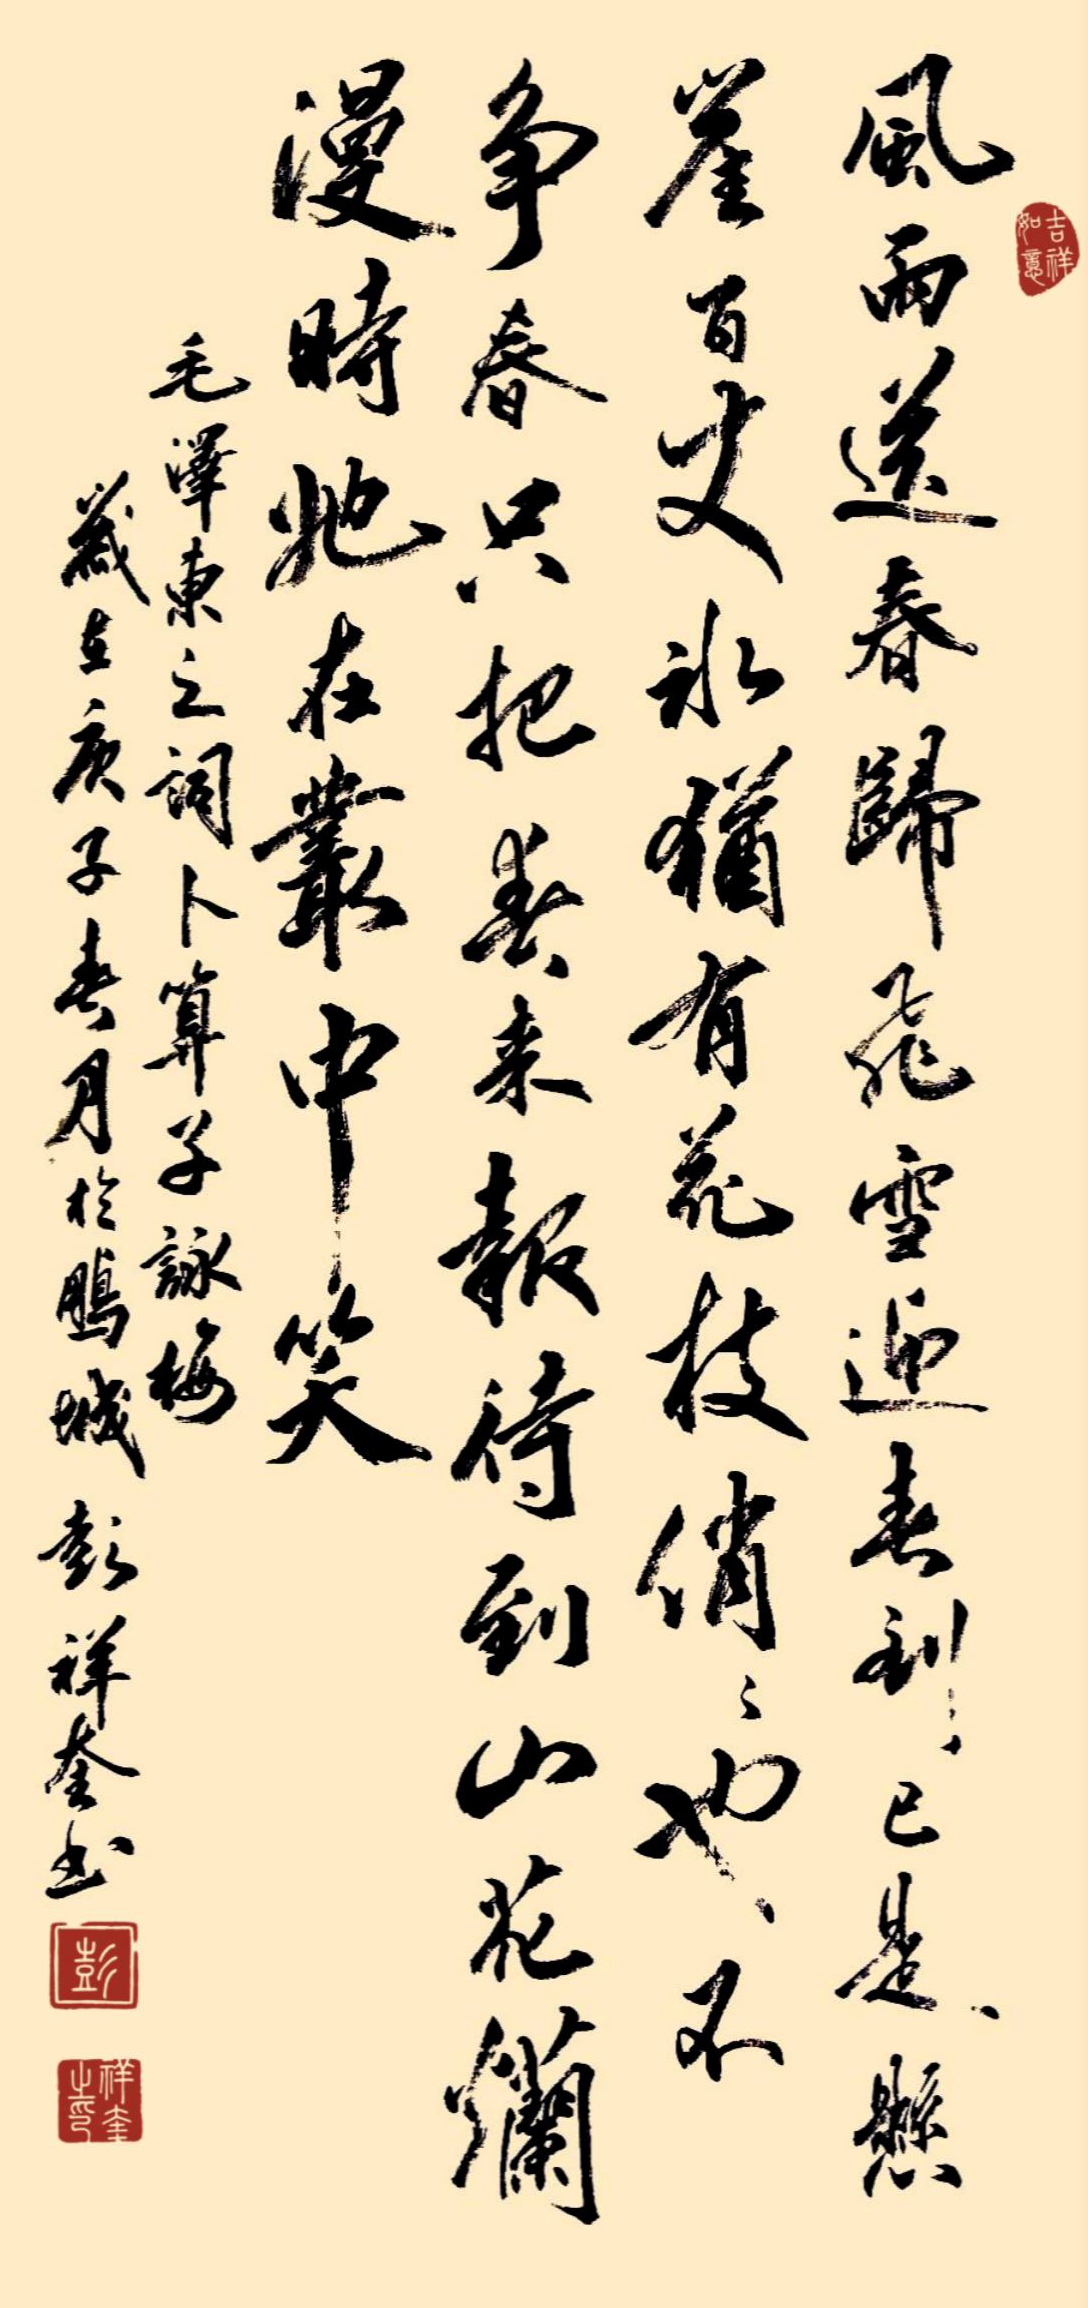 吉祥如意
風雨送春歸飛雪迎春到已是懸
崖百丈冰猶有花枝俏〻也不
争春只把春来報待到山花爛
漫時她在叢中笑
毛澤東之詞卜算子詠梅
歲在庚子春月於鵬城彭祥奎书
彭
祥奎之印